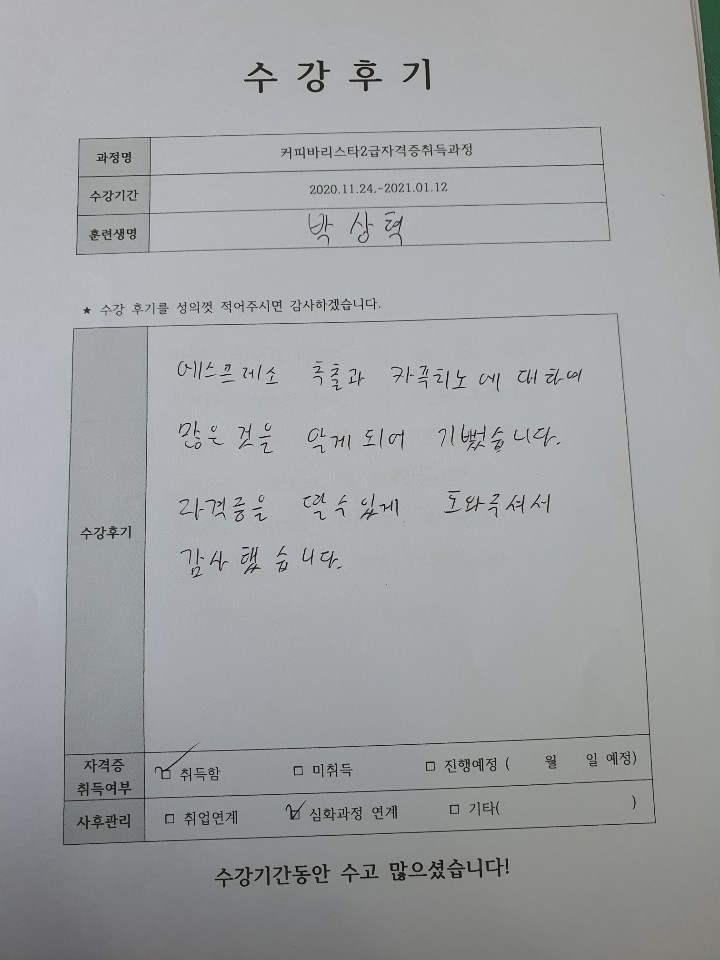 수 강 후 기
과정명 커피바리스타2급자격증취득과정
수강기간 2020.11.24.-2021.01.12
훈련생명 박상혁
★ 수강 후기를 성의껏 적어주시면 감사하겠습니다.
수강후기
에스프레소 추출과 카푹치노에 대하여
많은 것을 알게 되어 기뻤습니다.
자격증을 딸수 있게 도와주셔서
감사했습니다.
자격증 취득여부 □ 취득함 □ 미취득 □ 진행예정 ( 월 일 예정)
사후관리 □ 취업연계 □ 심화과정 연계 □ 기타( )
수강기간동안 수고 많으셨습니다!